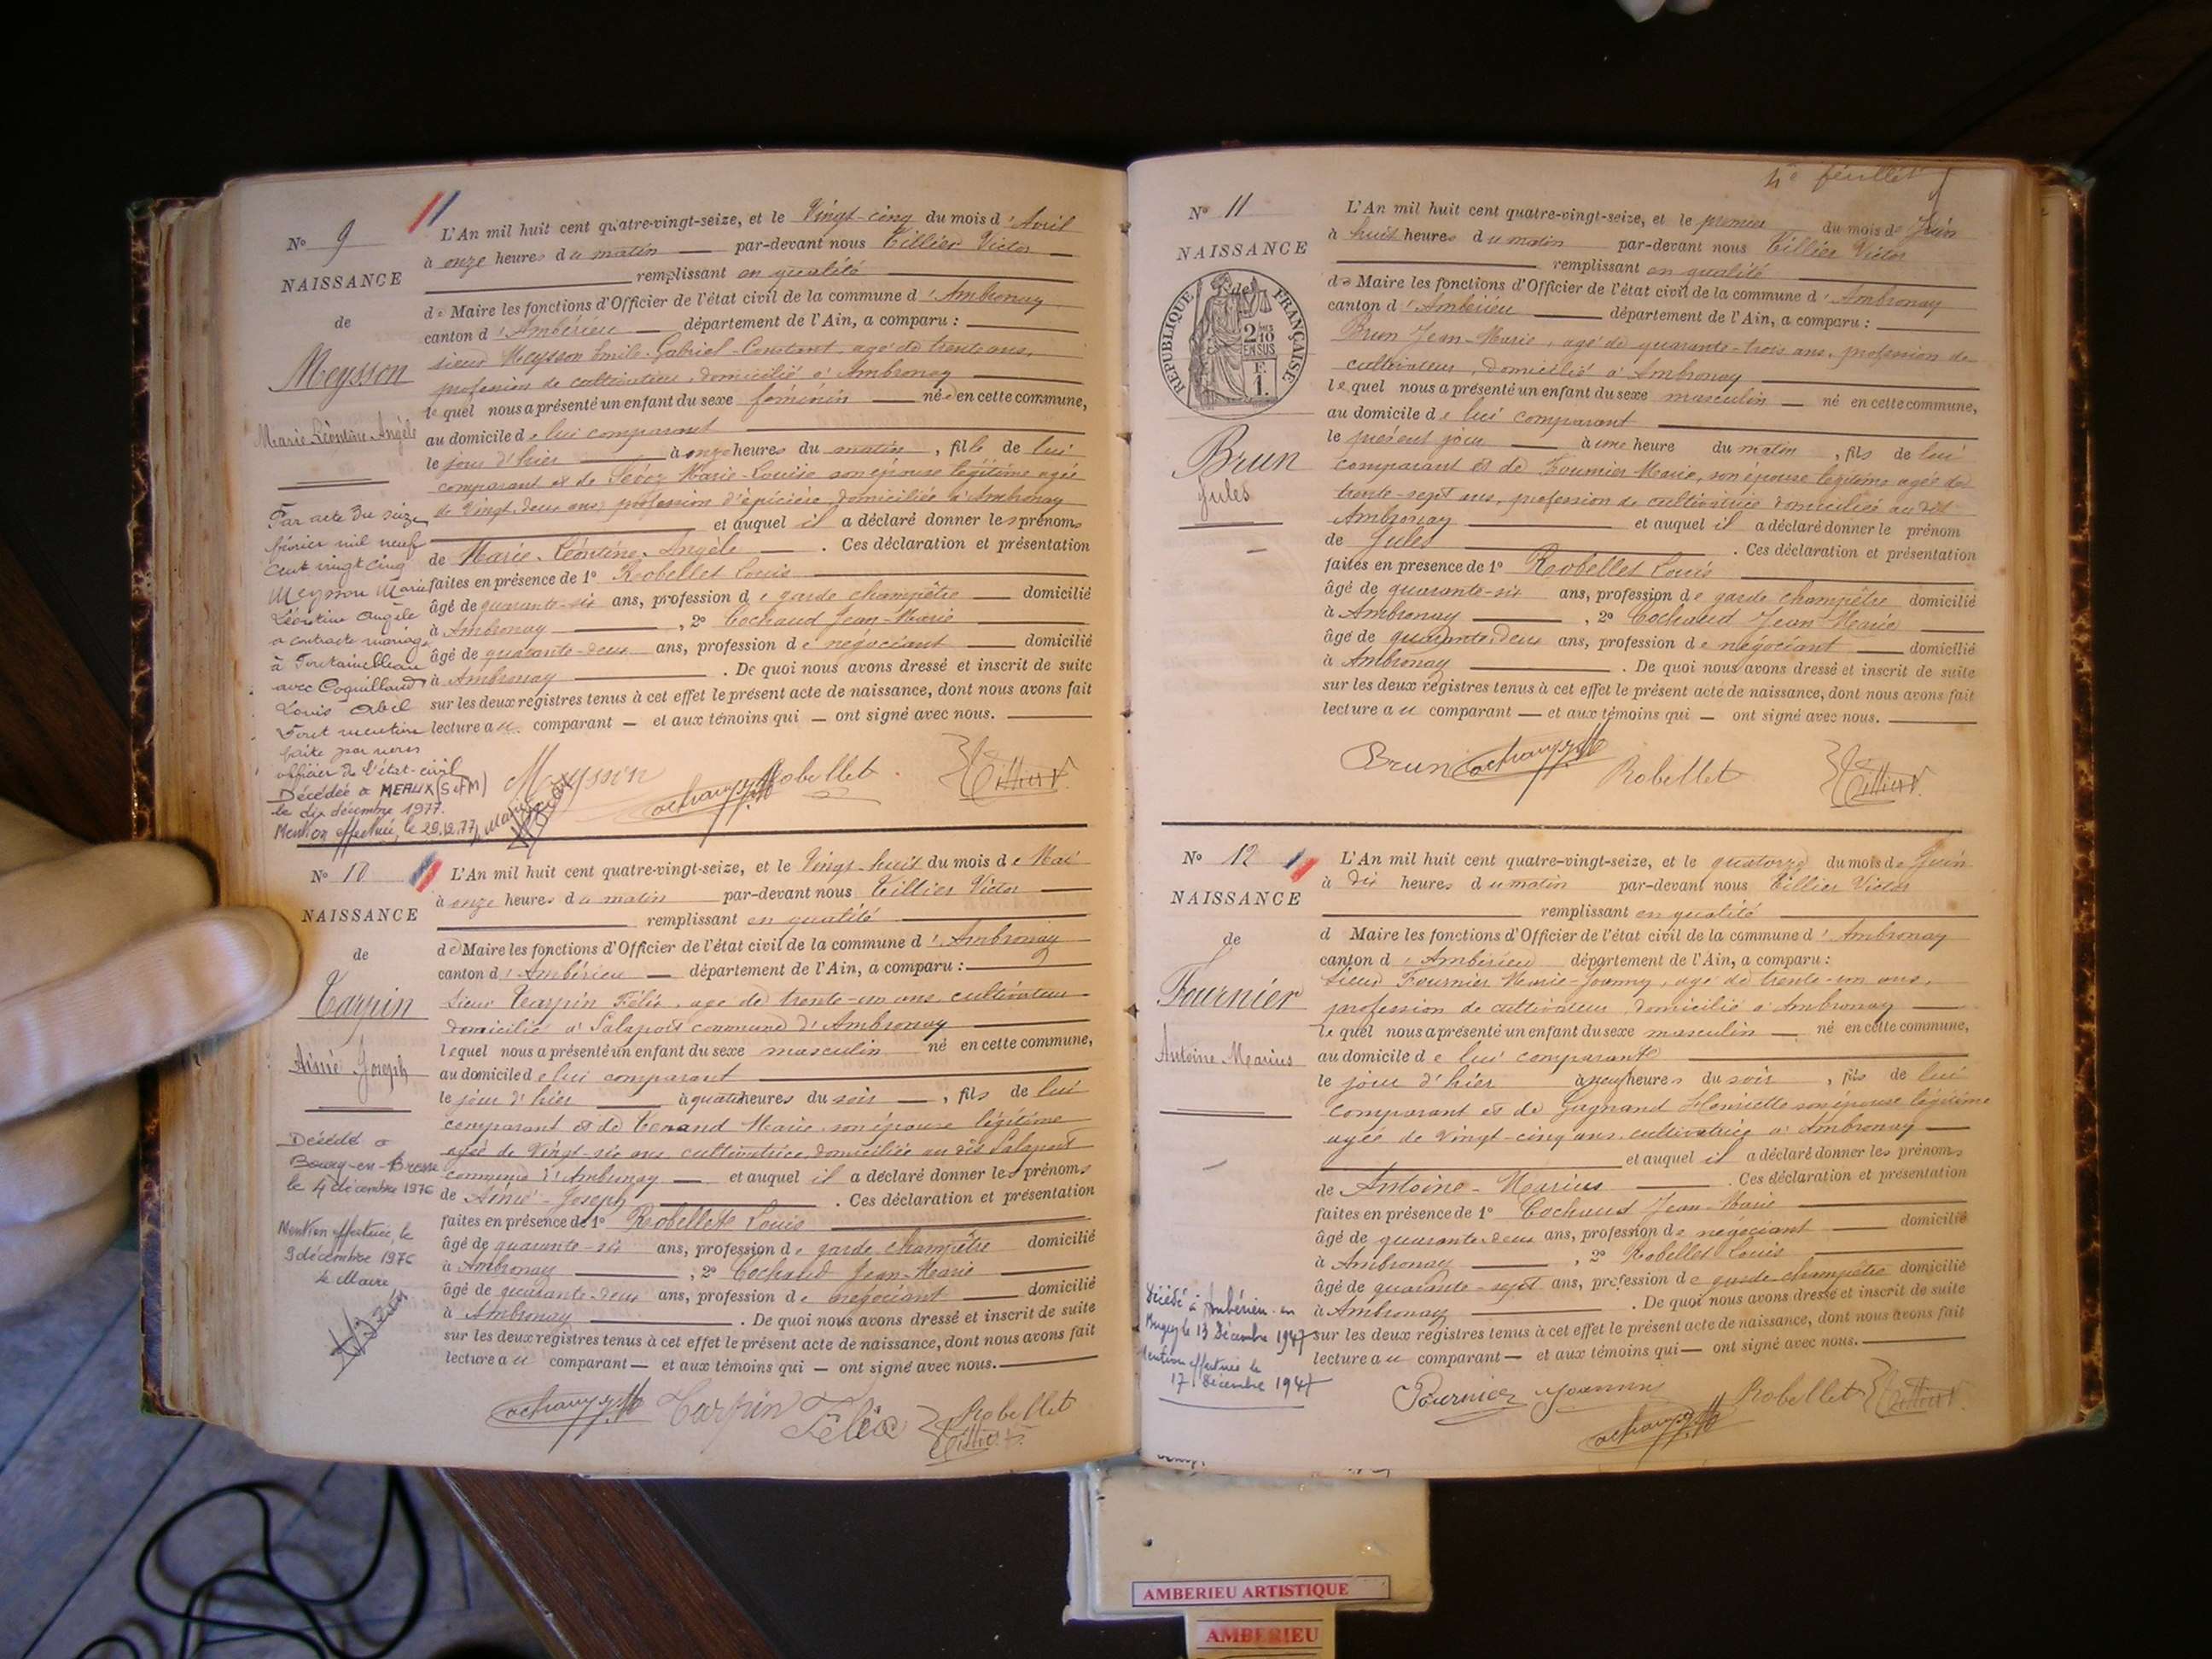 N° 9
NAISSANCE
de
Meysson
Marie Léontine Angèle
Par acte du seize
février mil neuf
cent vingt cinq
Meysson Marie
Léontine Angèle
a contracté mariage
à Fontainebleau
avec Coquillaud
Louis Abel
Dont mention
faite par nous
officier de l'état-civil
Décédée à MEAUX (S et M)
le dix décembre 1977.
Mention effectuée, le 29.12.77
L'An mil huit cent quatre-vingt-seize, et le Vingt-cinq du mois d'Avril
à onze heures du matin par-devant nous Tillier Victor
remplissant en qualité
de Maire les fonctions d'Officier de l'état civil de la commune d'Ambronay
canton d'Ambérieu département de l'Ain, a comparu :
sieur Meysson Emile-Gabriel-Constant, agé de trente ans,
profession de cultivateur, domicilié à Ambronay
lequel nous a présenté un enfant du sexe féminin née en cette commune,
au domicile de lui comparant
le jour d'hier à onze heures du matin, fille de lui
comparant et de Marie-Louise son épouse légitime agée
de Vingt-deux ans, profession d'épicière, domiciliée à Ambronay
et auquel il a déclaré donner les prénoms
de Marie-Léontine-Angèle. Ces déclaration et présentation
faites en présence de 1° Robellet Louis
âgé de quarante-six ans, profession de garde champêtre domicilié
à Ambronay, 2° Cochaud Jean-Marie
âgé de quarante-deux ans, profession de négociant domicilié
à Ambronay. De quoi nous avons dressé et inscrit de suite
sur les deux registres tenus à cet effet le présent acte de naissance, dont nous avons fait
lecture au comparant et aux témoins qui ont signé avec nous.
Meysson Cochaud Robellet Tillier V.
N° 10
NAISSANCE
de
Tarpin
Aimé Joseph
Décédé à
Bourg-en-Bresse
le 4 décembre 1976
Mention effectuée le
9 décembre 1976
le Maire
L'An mil huit cent quatre-vingt-seize, et le Vingt-huit du mois de Mai
à onze heures du matin par-devant nous Tillier Victor
remplissant en qualité
de Maire les fonctions d'Officier de l'état civil de la commune d'Ambronay
canton d'Ambérieu département de l'Ain, a comparu :
Sieur Tarpin Félix, age de trente-un ans, cultivateur
domicilié à Salaport commune d'Ambronay
lequel nous a présenté un enfant du sexe masculin né en cette commune,
au domicile de lui comparant
le jour d'hier à quatre heures du soir, fils de lui
comparant et de Tenand Marie, son épouse légitime
agée de Vingt-six ans cultivatrice, domiciliée au dit Salaport
commune d'Ambronay et auquel il a déclaré donner les prénoms
de Aimé-Joseph. Ces déclaration et présentation
faites en présence de 1° Robellet Louis
âgé de quarante-six ans, profession de garde champêtre domicilié
à Ambronay, 2° Cochaud Jean-Marie
âgé de quarante-deux ans, profession de négociant domicilié
à Ambronay. De quoi nous avons dressé et inscrit de suite
sur les deux registres tenus à cet effet le présent acte de naissance, dont nous avons fait
lecture au comparant et aux témoins qui ont signé avec nous.
Cochaud Tarpin Félix Robellet
Tillier V.
4e feuillet
N° 11
NAISSANCE
de
RÉPUBLIQUE FRANÇAISE
2/10
EN SUS
F.
1.
Brun
Jules
L'An mil huit cent quatre-vingt-seize, et le premier du mois de Juin
à huit heures du matin par-devant nous Tillier Victor
remplissant en qualité
de Maire les fonctions d'Officier de l'état civil de la commune d'Ambronay
canton d'Ambérieu département de l'Ain, a comparu :
Brun Jean-Marie, agé de quarante-trois ans, profession de
cultivateur, domicilié à Ambronay
lequel nous a présenté un enfant du sexe masculin né en cette commune,
au domicile de lui comparant
le présent jour à une heure du matin, fils de lui
comparant et de Fournier Marie, son épouse légitime agée de
trente-sept ans, profession de cultivatrice domiciliée au dit
Ambronay et auquel il a déclaré donner le prénom
de Jules. Ces déclaration et présentation
faites en présence de 1° Robellet Louis
âgé de quarante-six ans, profession de garde champêtre domicilié
à Ambronay, 2° Cochaud Jean-Marie
âgé de quarante-deux ans, profession de négociant domicilié
à Ambronay. De quoi nous avons dressé et inscrit de suite
sur les deux registres tenus à cet effet le présent acte de naissance, dont nous avons fait
lecture au comparant et aux témoins qui ont signé avec nous.
Brun Cochaud Robellet Tillier V.
N° 12
NAISSANCE
de
Fournier
Antoine Marius
Décédé à Ambérieu-en
Bugey le 13 Décembre 1947
Mention effectuée le
17 Décembre 1947
L'An mil huit cent quatre-vingt-seize, et le quatorze du mois de Juin
à dix heures du matin par-devant nous Tillier Victor
remplissant en qualité
d Maire les fonctions d'Officier de l'état civil de la commune d'Ambronay
canton d'Ambérieu département de l'Ain, a comparu :
Sieur Fournier Marie-Joanny, agé de trente-un ans,
profession de cultivateur, domicilié à Ambronay
lequel nous a présenté un enfant du sexe masculin né en cette commune,
au domicile de lui comparant
le jour d'hier à neuf heures du soir, fils de lui
comparant et de Gagnand Henriette son épouse légitime
agée de vingt-cinq ans, cultivatrice à Ambronay
et auquel il a déclaré donner les prénoms
de Antoine-Marius. Ces déclaration et présentation
faites en présence de 1° Cochaud Jean-Marie
âgé de quarante-deux ans, profession de négociant domicilié
à Ambronay, 2° Robellet Louis
âgé de quarante-sept ans, profession de garde-champêtre domicilié
à Ambronay. De quoi nous avons dressé et inscrit de suite
sur les deux registres tenus à cet effet le présent acte de naissance, dont nous avons fait
lecture au comparant et aux témoins qui ont signé avec nous.
Fournier Joanny Robellet Tillier V.
Cochaud
AMBERIEU ARTISTIQUE
AMBERIEU